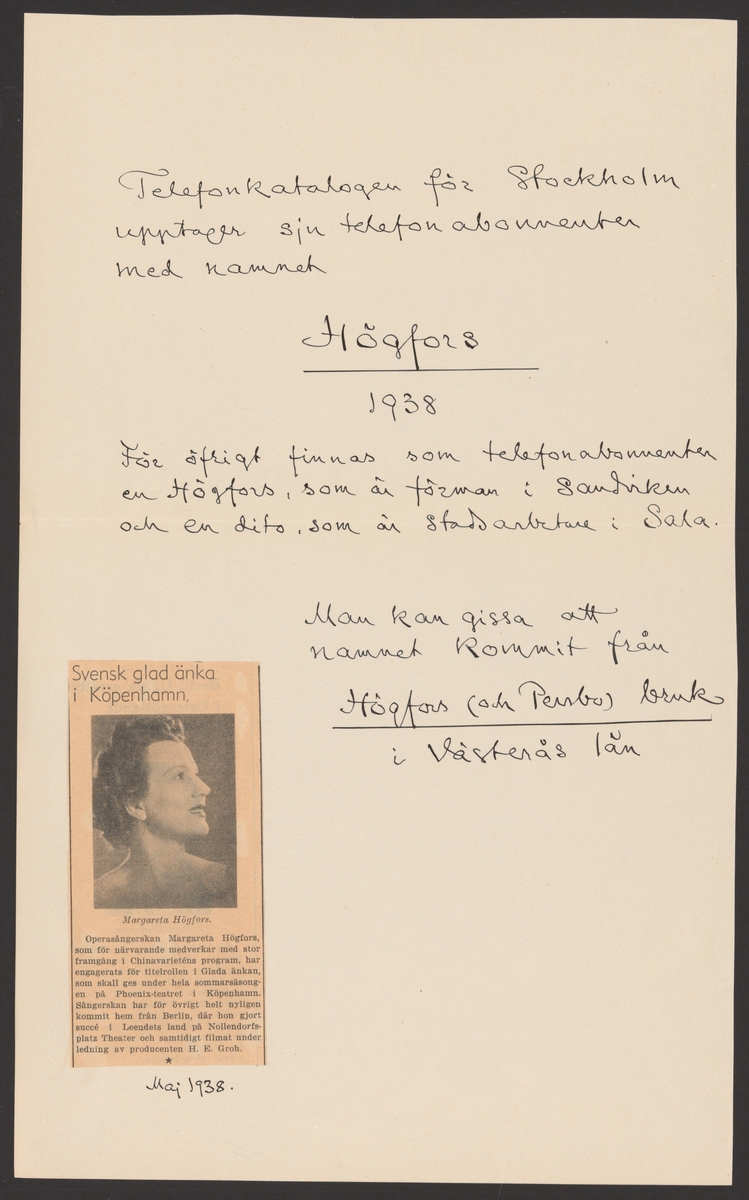 Telefonkatalogen för Stockholm
upptager sju telefonabonnenter
med namnet
Högfors
1938
För öfrigt finnas som telefonabonnenter
en Högfors, som är förman i Sandviken
och en dito, som är stadsarbetare i Sala.
Man kan gissa att
namnet kommit från
Högfors (och Persbo) bruk
i Västerås län
Svensk glad änka
i Köpenhamn.
Margareta Högfors.
Operasångerskan Margareta Högfors,
som för närvarande medverkar med stor
framgång i Chinavarieténs program, har
engagerats för titelrollen i Glada änkan,
som skall ges under hela sommarsäsong-
en på Phoenix-teatret i Köpenhamn.
Sångerskan har för övrigt helt nyligen
kommit hem från Berlin, där hon gjort
succé i Leendets land på Nollendorfs-
platz Theater och samtidigt filmat under
ledning av producenten H. E. Groh.
*
Maj 1938.